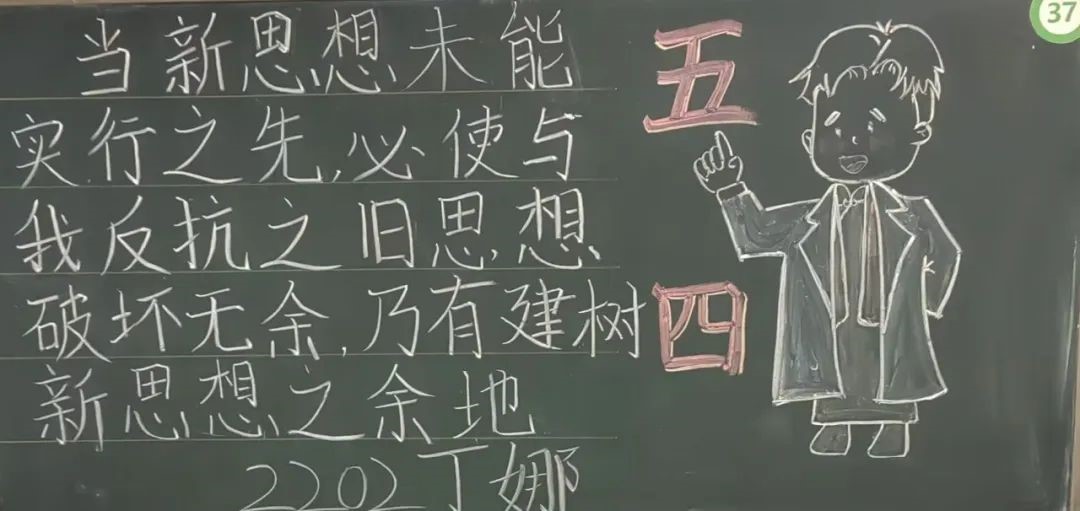 当新思想未能
实行之先,必使与
我反抗之旧思想
破坏无余,乃有建树
新思想之余地
2202丁娜
五
四
37